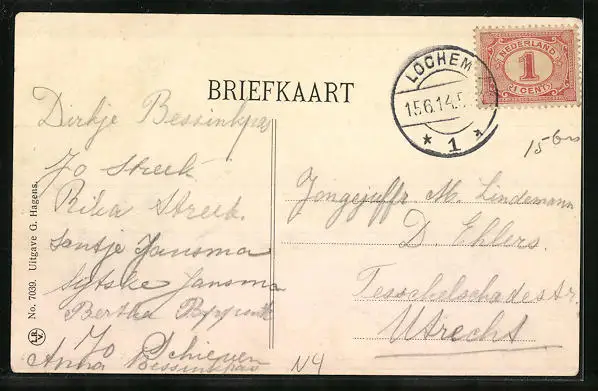 BRIEFKAART
NEDERLAND
1
1 CENT
LOCHEM
15.6.14.5
* 1
Dirkje
Jo Streek
Rika Streek.
Jantje Jansma
Sytske Jansma
Bertha
Jo Schieven
Anna
Jongejuffr. M. Lindemann
D. Ehlers.
Tesschelschadestr.
Utrecht
N4
No. 7039. Uitgave G. Hagens.